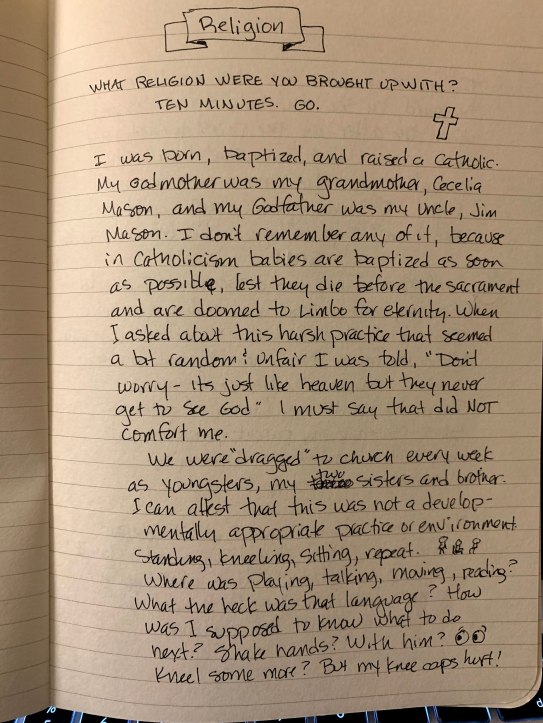 Religion
WHAT RELIGION WERE YOU BROUGHT UP WITH?
TEN MINUTES. GO.
I was born, baptized, and raised a Catholic.
My Godmother was my grandmother, Cecelia
Mason, and my Godfather was my Uncle, Jim
Mason. I don't remember any of it, because
in Catholicism babies are baptized as soon
as possible, lest they die before the sacrament
and are doomed to Limbo for eternity. When
I asked about this harsh practice that seemed
a bit random & unfair I was told, "Don't
worry - its just like heaven but they never
get to see God" I must say that did NOT
comfort me.
We were "dragged" to church every week
as youngsters, my two sisters and brother.
I can attest that this was not a develop-
mentally appropriate practice or environment.
Standing, kneeling, sitting, repeat.
Where was playing, talking, moving, reading?
What the heck was that language? How
was I supposed to know what to do
next? Shake hands? With him?
Kneel some more? But my knee caps hurt!